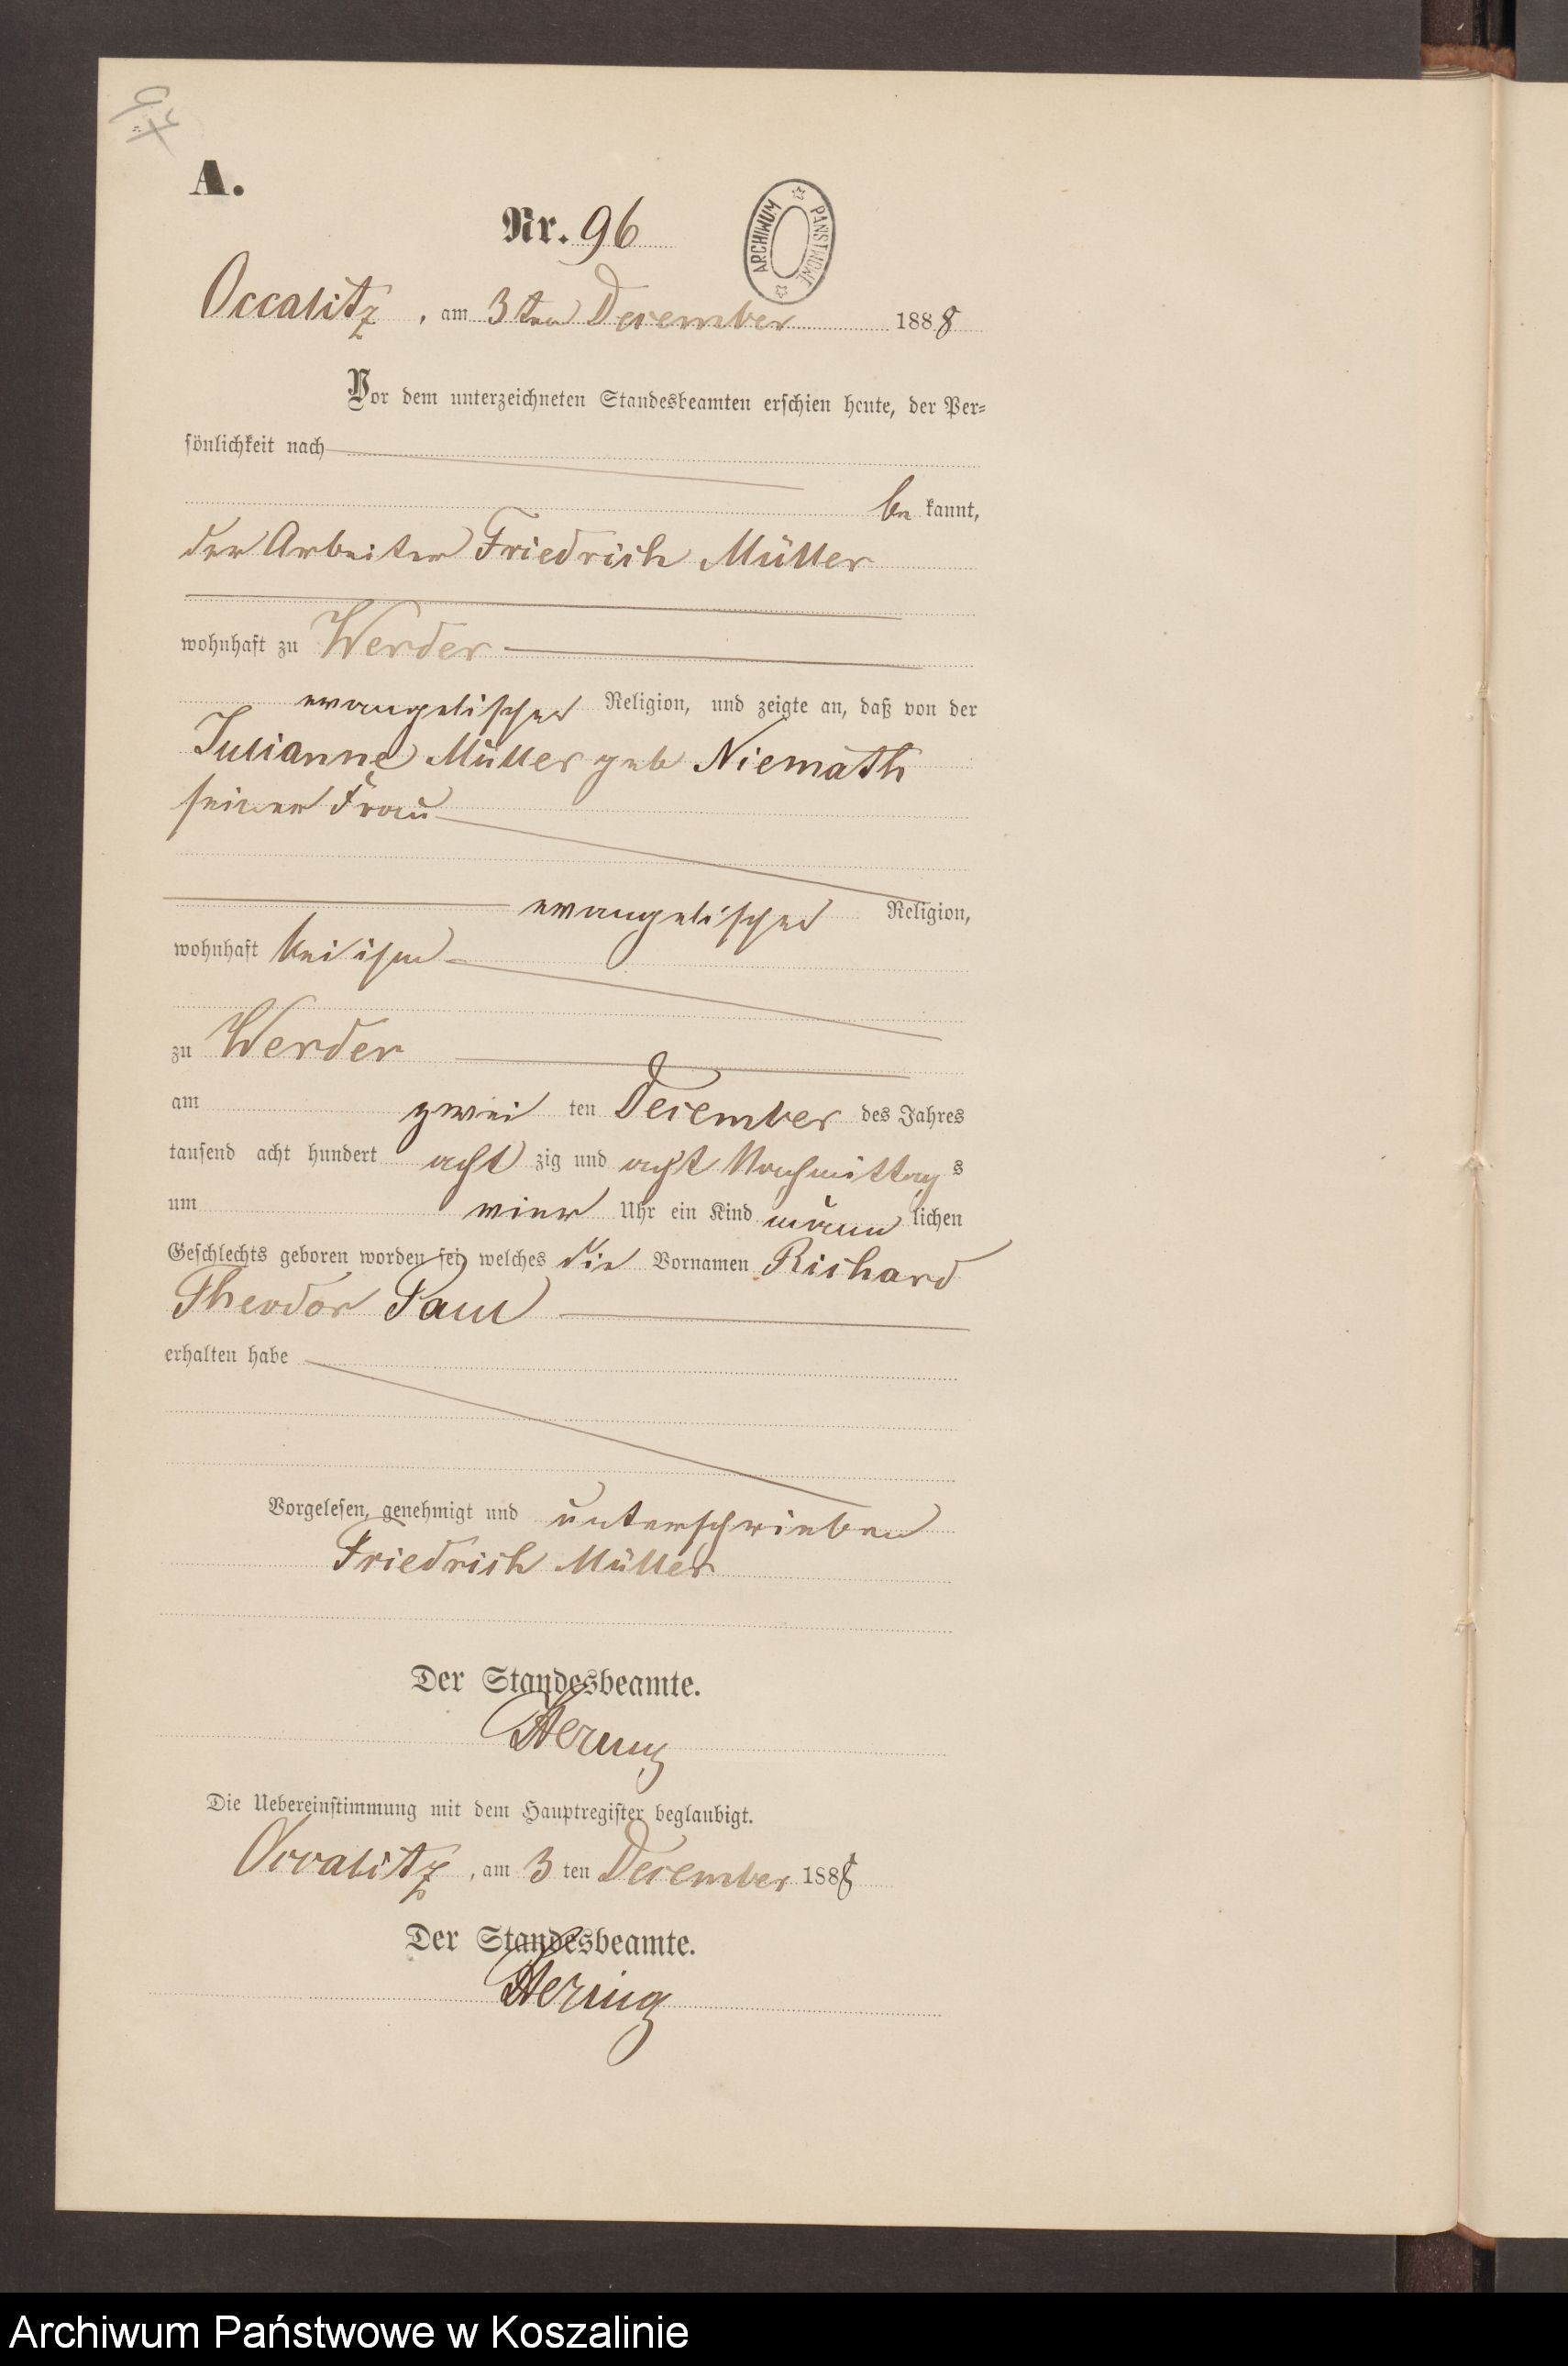 A.
Nr. 96
ARCHIWUM PAŃSTWOWE
Occalitz, am 3ten December 1888
Vor dem unterzeichneten Standesbeamten erschien heute, der Per-
sönlichkeit nach
be kannt,
der Arbeiter Friedrich Müller
wohnhaft zu Werder
evangelischer Religion, und zeigte an, daß von der
Julianne Müller geb Niemath
seiner Frau
evangelischer Religion,
wohnhaft bei ihm
zu Werder
am zwei ten December des Jahres
tausend acht hundert acht zig und acht Nachmittag s
um vier Uhr ein Kind männ lichen
Geschlechts geboren worden sei, welches die Vornamen Richard
Theodor Paul
erhalten habe
Vorgelesen, genehmigt und unterschrieben
Friedrich Müller
Der Standesbeamte.
Hering
Die Uebereinstimmung mit dem Hauptregister beglaubigt.
Occalitz, am 3 ten December 1888
Der Standesbeamte.
Hering
Archiwum Państwowe w Koszalinie